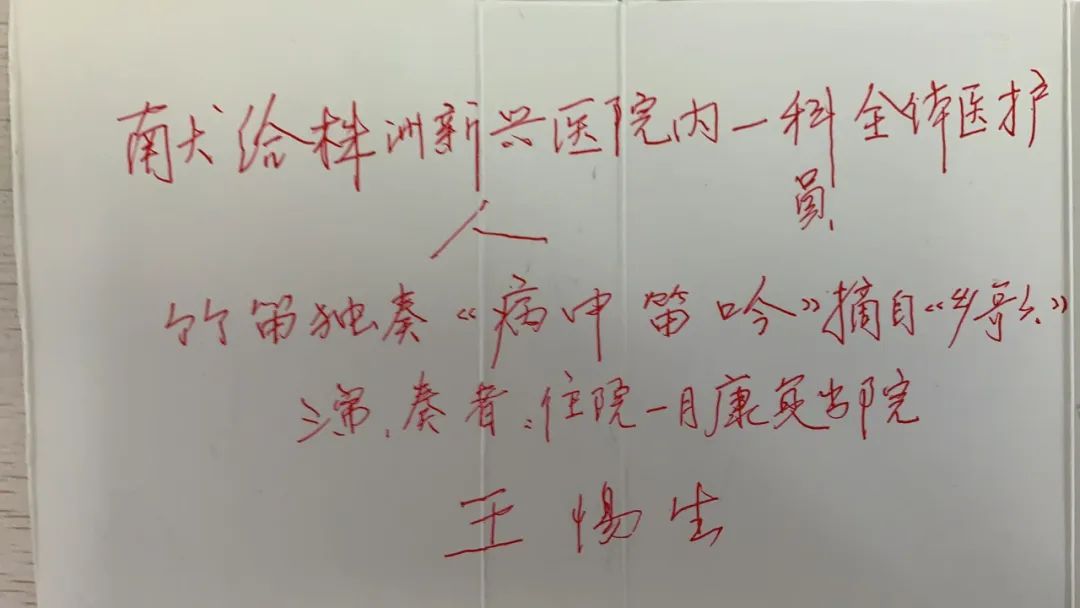 献给株洲新兴医院内一科全体医护
人员
竹笛独奏《病中笛吟》摘自《乡歌》
演奏者:住院一月康复出院
王惕生